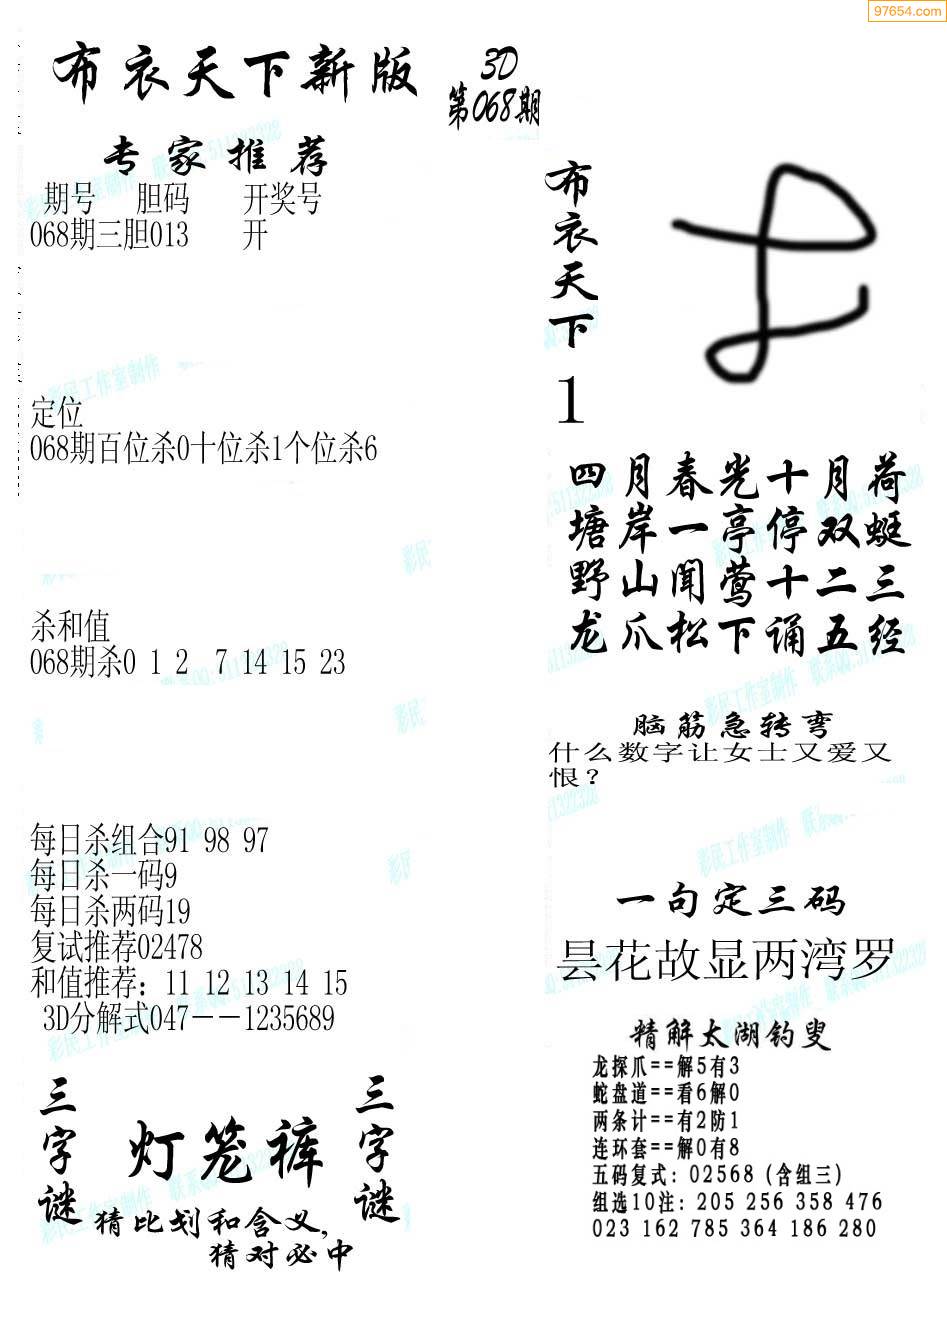 97654.com
布衣天下新版
3D
第068期
专家推荐
期号 胆码 开奖号
068期三胆013 开
定位
068期百位杀0十位杀1个位杀6
杀和值
068期杀0 1 2 7 14 15 23
每日杀组合91 98 97
每日杀一码9
每日杀两码19
复试推荐02478
和值推荐：11 12 13 14 15
3D分解式047－－1235689
三字谜
灯笼裤
三字谜
猜比划和含义，
猜对必中
布衣天下
1
四月春光十月荷
塘岸一亭停双蜓
野山闻莺十二三
龙爪松下诵五经
脑筋急转弯
什么数字让女士又爱又
恨？
一句定三码
昙花故显两湾罗
精解太湖钓叟
龙探爪==解5有3
蛇盘道==看6解0
两条计==有2防1
连环套==解0有8
五码复式：02568（含组三）
组选10注：205 256 358 476
023 162 785 364 186 280
彩民工作室制作 联系QQ:511322328